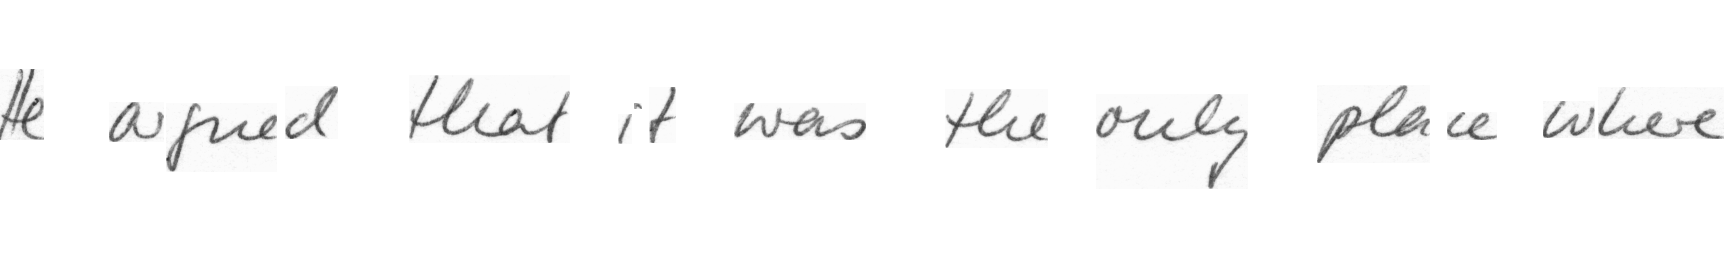 He argued that it was the only place where